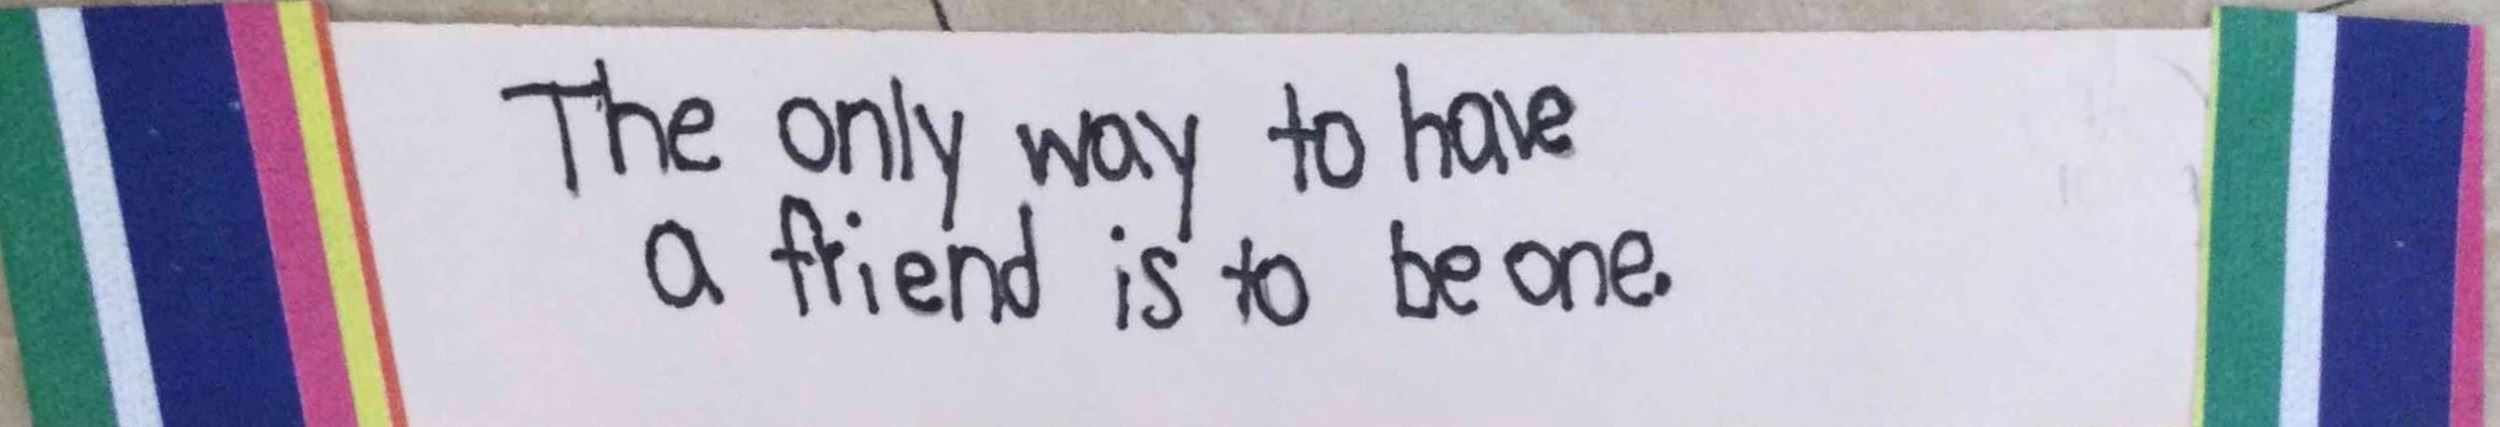 The only way to have
a friend is to be one.